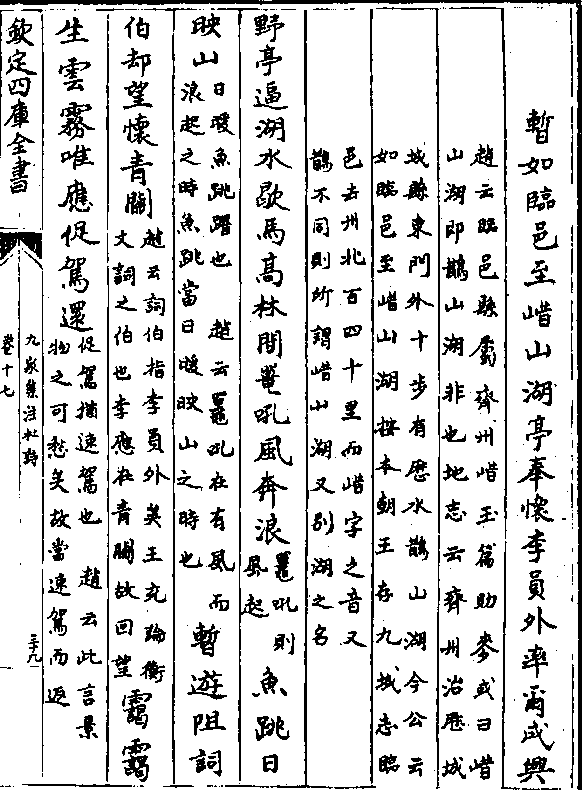 暫如臨邑至㟙山湖亭奉懷李員外率爾成興
趙云臨邑縣屬齊州㟙玉篇助麥或曰㟙
山湖即鵲山湖非也地志云齊州治歷城
城縣東門外十步有歷水鵲山湖今公云
如臨邑至㟙山湖按本朝王存九域志臨
邑去州北百四十里而㟙字之音又
鵲不同則所謂㟙山湖又別湖之名
野亭逼湖水歇馬高林間鼉吼風奔浪鼉吼則風起魚跳日
映山日暖魚跳躍也 趙云鼉吼在有風而浪起之時魚跳當日暖映山之時也暫遊阻詞
伯却望懷青關趙云詞伯指李員外矣王充論衡文詞之伯也李應在青關故回望靄靄
生雲霧唯應促駕還促駕猶速駕也 趙云此言景物之可愁矣故當速駕而返
欽定四庫全書
九家集注杜詩
卷十七
三十九